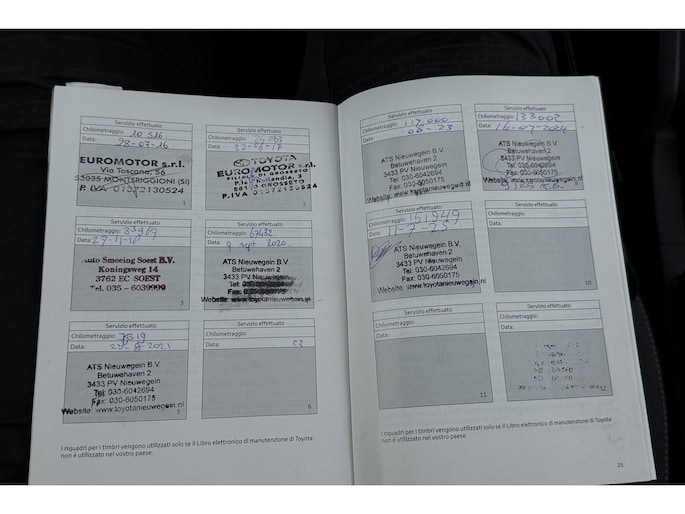 Servizio effettuato
Chilometraggio: 10 516
Data: 28-07-16
EUROMOTOR s.r.l.
Via Toscana, 56
53035 MONTERIGGIONI (SI)
P. IVA 01372130524
1
Servizio effettuato
Chilometraggio:
Data:
TOYOTA
EUROMOTOR s.r.l.
FILIALE DI GROSSETO
P.le Hollandia, 3
GROSSETO
P.IVA 01372130524
2
Servizio effettuato
Chilometraggio:
Data:
Auto Smeeing Soest B.V.
Koningsweg 14
3762 EC SOEST
Tel. 035 - 6039999
3
Servizio effettuato
Chilometraggio: 57432
Data: 9 sept 2020
ATS Nieuwegein B.V.
Betuwehaven 2
3433 PV Nieuwegein
Website: www.toyotanieuwegein.nl
Servizio effettuato
Chilometraggio:
Data:
ATS Nieuwegein B.V.
Betuwehaven 2
3433 PV Nieuwegein
Tel: 030-6042694
Fax: 030-6050175
Website: www.toyotanieuwegein.nl
5
Servizio effettuato
Chilometraggio:
Data: 22
6
I riquadri per i timbri vengono utilizzati solo se il Libro elettronico di manutenzione di Toyota
non è utilizzato nel vostro paese.
Servizio effettuato
Chilometraggio: 117.000
Data: 08-23
ATS Nieuwegein B.V.
Betuwehaven 2
3433 PV Nieuwegein
Tel: 030-6042694
Fax: 030-6050175
Website: www.toyotanieuwegein.nl
Servizio effettuato
Chilometraggio: 133002
Data: 16-07-2024
ATS Nieuwegein B.V.
Betuwehaven 2
3433 PV Nieuwegein
Tel: 030-6042694
Fax: 030-6050175
Website: www.toyotanieuwegein.nl
8
Servizio effettuato
Chilometraggio: 151949
Data: 11-7-25
ATS Nieuwegein B.V.
Betuwehaven 2
3433 PV Nieuwegein
Tel: 030-6042694
Website: www.toyotanieuwegein.nl
Servizio effettuato
Chilometraggio:
Data:
10
Servizio effettuato
Chilometraggio:
Data:
11
Servizio effettuato
Chilometraggio:
Data:
I riquadri per i timbri vengono utilizzati solo se il Libro elettronico di manutenzione di Toyota
non è utilizzato nel vostro paese.
25